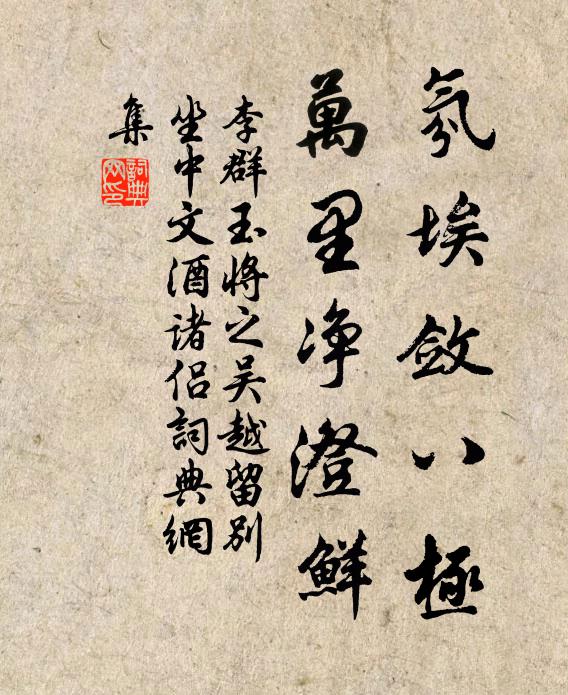 氛埃斂八極
萬里净澄鮮
李群玉將之吴越留别
坐中文酒諸侣詞典網
集
詞典網印